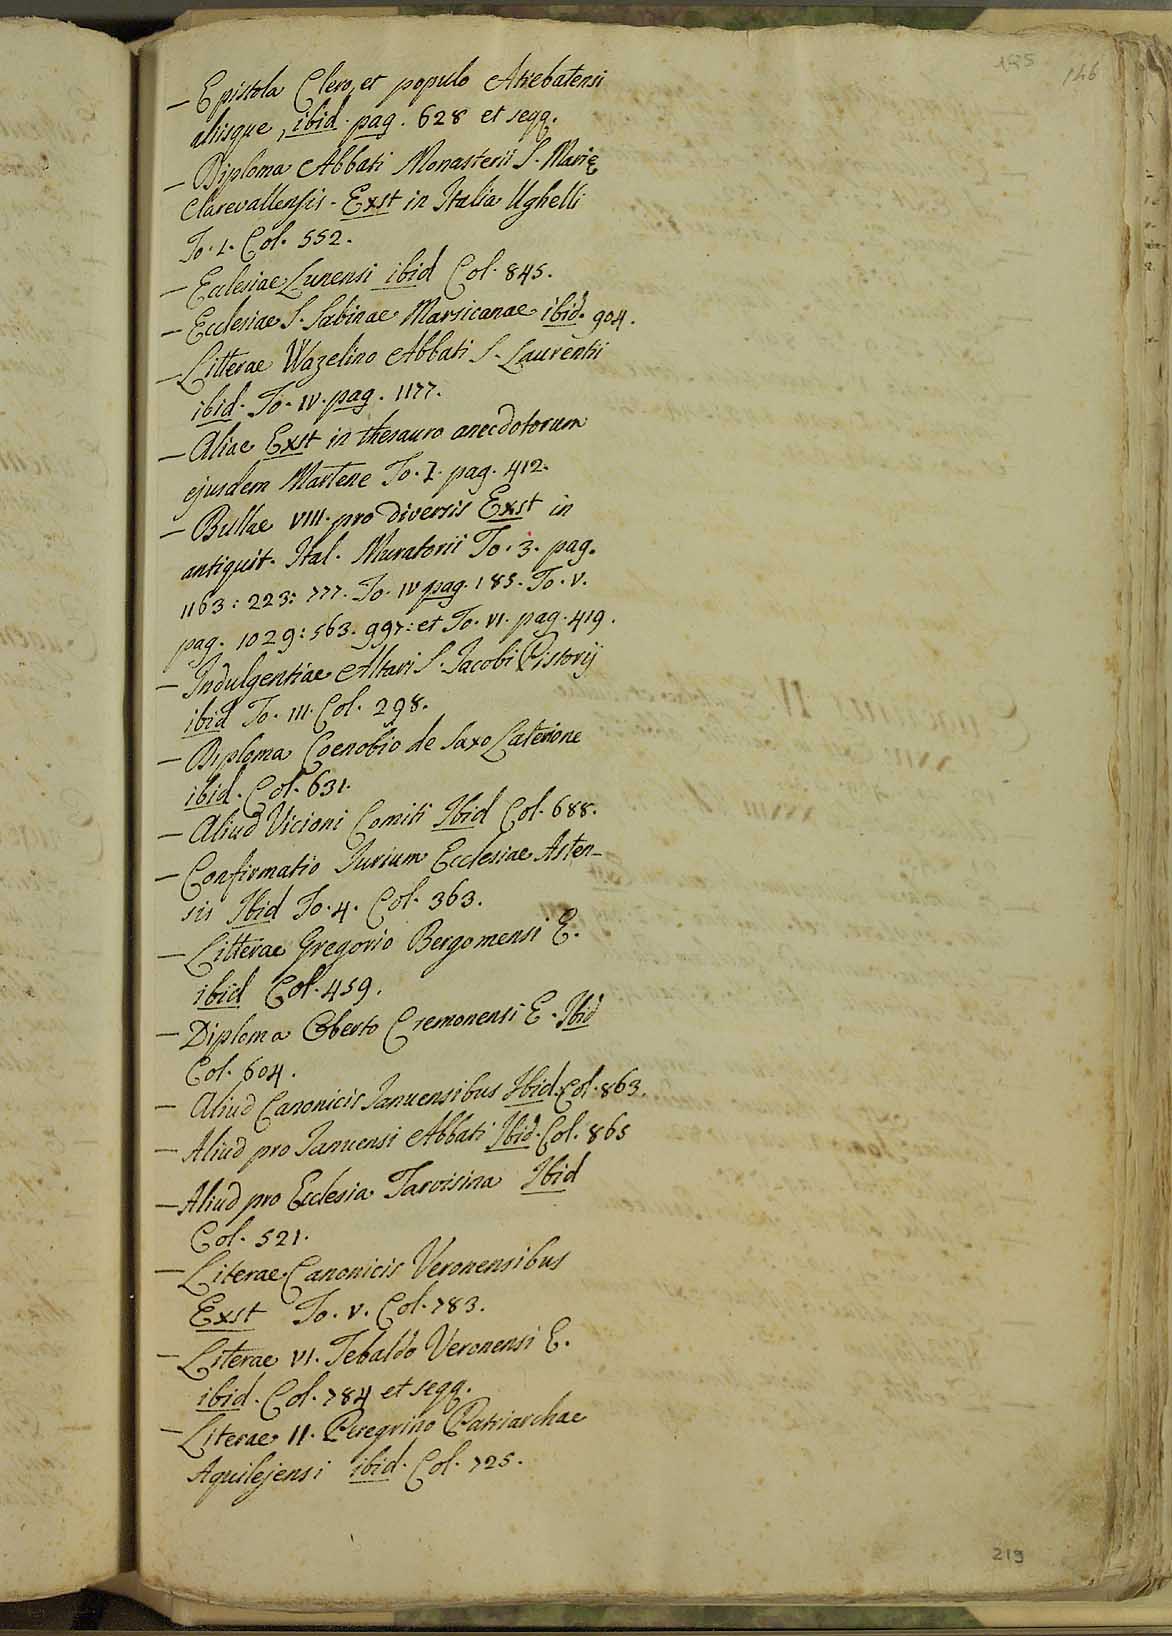 185
146
— Epistola Clero, et populo Atrebatensi
aliisque, ibid. pag. 628 et seqq.
— Diploma Abbati Monasterii S. Marię
Clarevallensis. Exst in Italia Ughelli
To. 1. Col. 552.
— Ecclesiae Lunensi ibid Col. 845.
— Ecclesiae S. Sabinae Marsicanae ibid. 904.
— Litterae Wazelino Abbati S. Laurentii
ibid. To. IV. pag. 1177.
— Aliae Exst in thesauro anecdotorum
ejusdem Martene To. I. pag. 412.
— Bullae VIII. pro diversis Exst in
antiquit. Ital. Muratorii To. 3. pag.
1163: 223: 777. To. IV pag. 185. To. V.
pag. 1029: 563. 997: et To. VI. pag. 419.
— Indulgentiae Altari S. Jacobi Pistorij
ibid To. III. Col. 298.
— Diploma Coenobio de Saxo Laterone
ibid. Col. 631.
— Aliud Vicioni Comiti Ibid Col. 688.
— Confirmatio Jurium Ecclesiae Asten-
sis Ibid To. 4. Col. 363.
— Litterae Gregorio Bergomensi E.
ibid Col. 459.
— Diploma Oberto Cremonensi E. Ibid
Col. 604.
— Aliud Canonicis Januensibus Ibid. Col. 863.
— Aliud pro Januensi Abbati Ibid. Col. 865
— Aliud pro Ecclesia Tarvisina Ibid
Col. 521.
— Literae Canonicis Veronensibus
Exst To. V. Col. 783.
— Literae VI. Tebaldo Veronensi E.
ibid. Col. 784 et seqq.
— Literae II. Peregrino Patriarchae
Aquilejensi ibid. Col. 725.
219